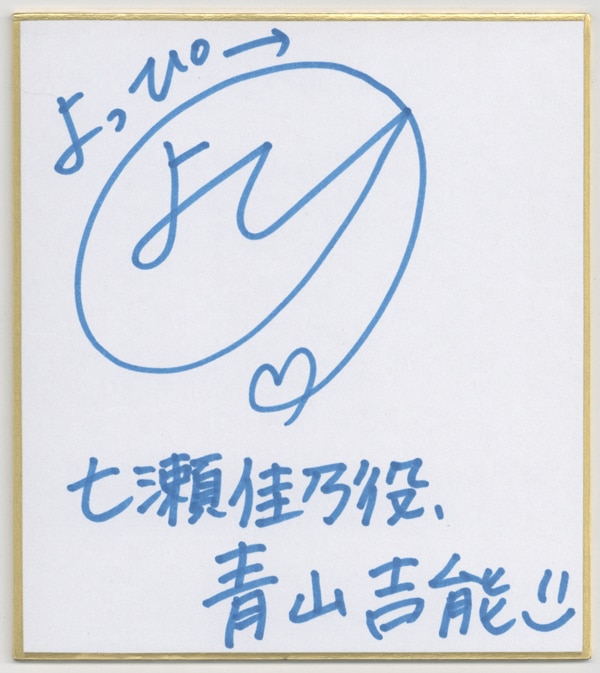 よっぴー→
よし
七瀬佳乃役、
青山吉能